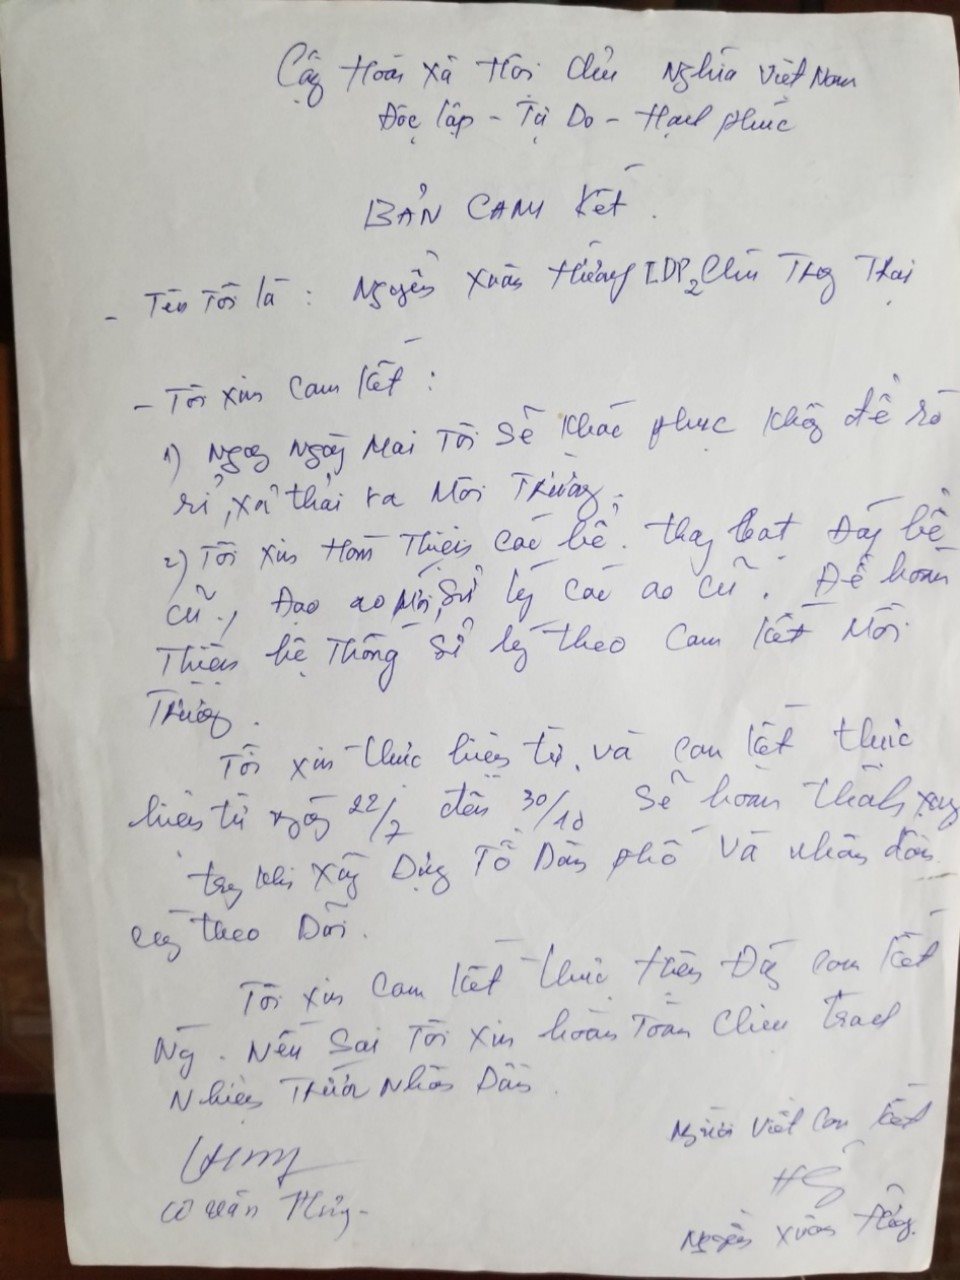 Cộng Hoà Xã Hội Chủ Nghĩa Việt Nam
Độc lập - Tự Do - Hạnh phúc
BẢN CAM Kết.
- Tên Tôi là : Nguyễn Xuân Hưởng TDP2 Chủ Trang Trại
- Tôi xin Cam Kết :
1) Ngay Ngày Mai Tôi Sẽ Khắc phục Không để rò
rỉ, xả thải ra Môi Trường.
2) Tôi xin Hoàn Thiện các bể. thay bạt Đáy bể
cũ., Đạo ao Mới, Sử lý các ao cũ. Để hoàn
Thiện hệ Thống Sử lý theo Cam Kết Môi
Trường.
Tôi xin thực hiện từ, và cam kết thực
hiện từ ngày 22/7 đến 30/10 Sẽ hoàn thành xong
trong khi xây Dựng Tổ Dân phố và nhân dân
cùng theo Dõi.
Tôi xin Cam Kết thực Hiện Đúng Cam Kết
Này. Nếu Sai Tôi xin hoàn Toàn Chịu trách
Nhiệm Trước Nhân Dân.
Người Viết Cam Kết
Nguyễn Xuân